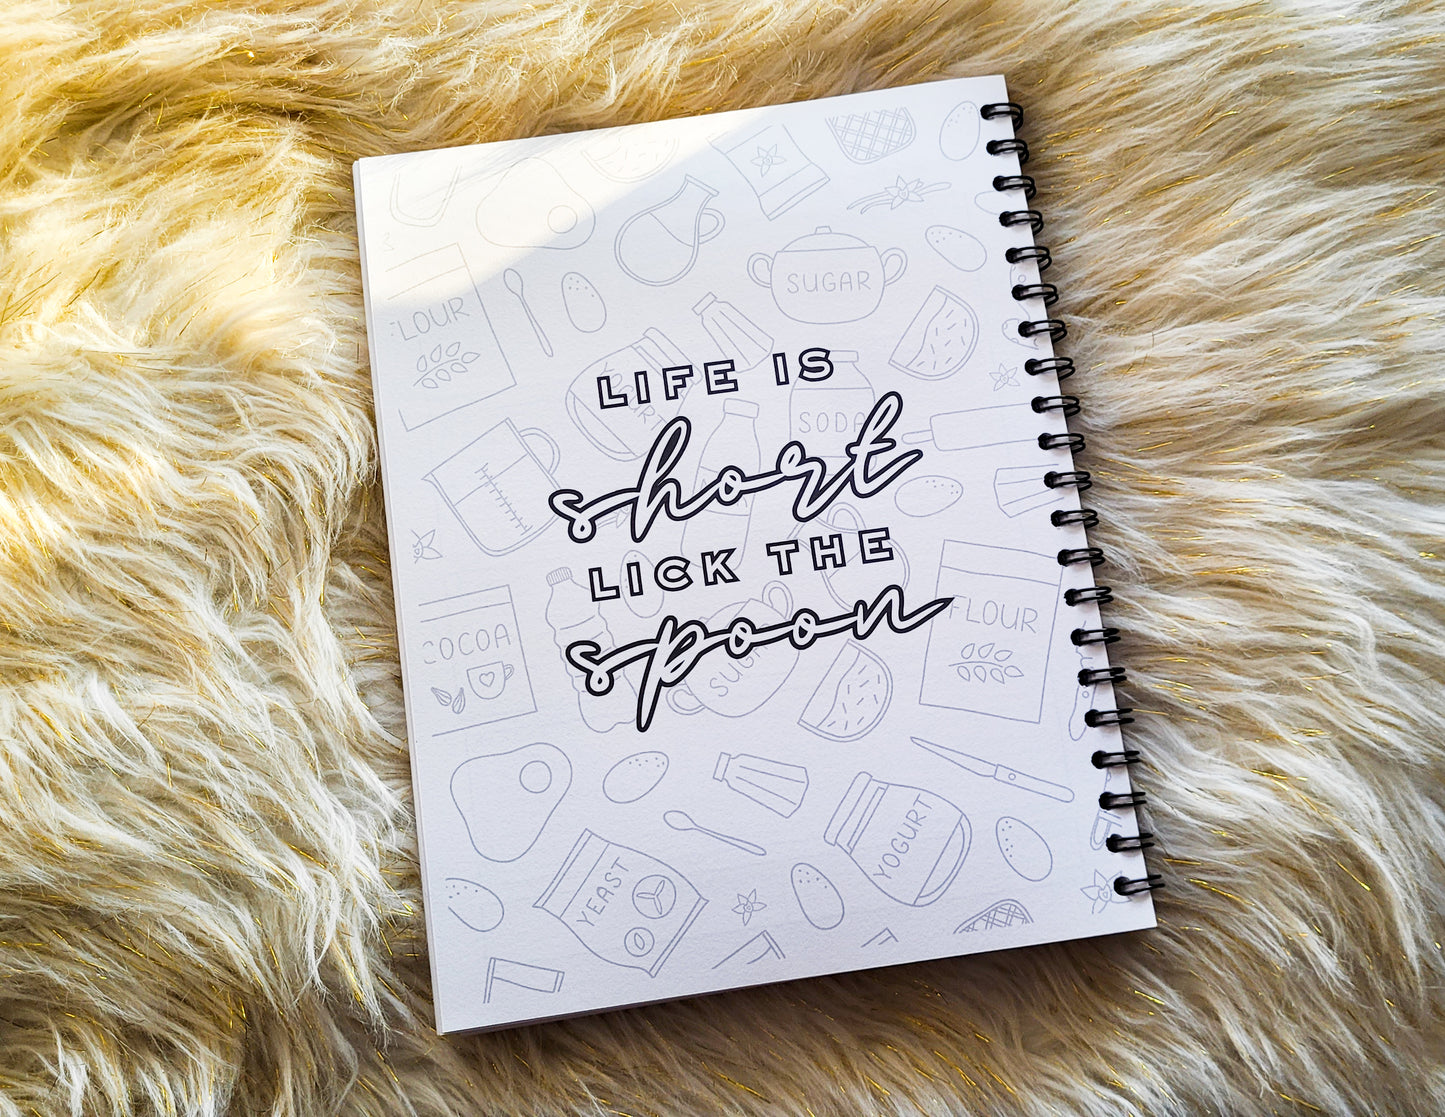 SUGAR
FLOUR
LIFE IS
SODA
short
LICK THE
spoon
FLOUR
COCOA
SUGAR
YOGURT
YEAST
0